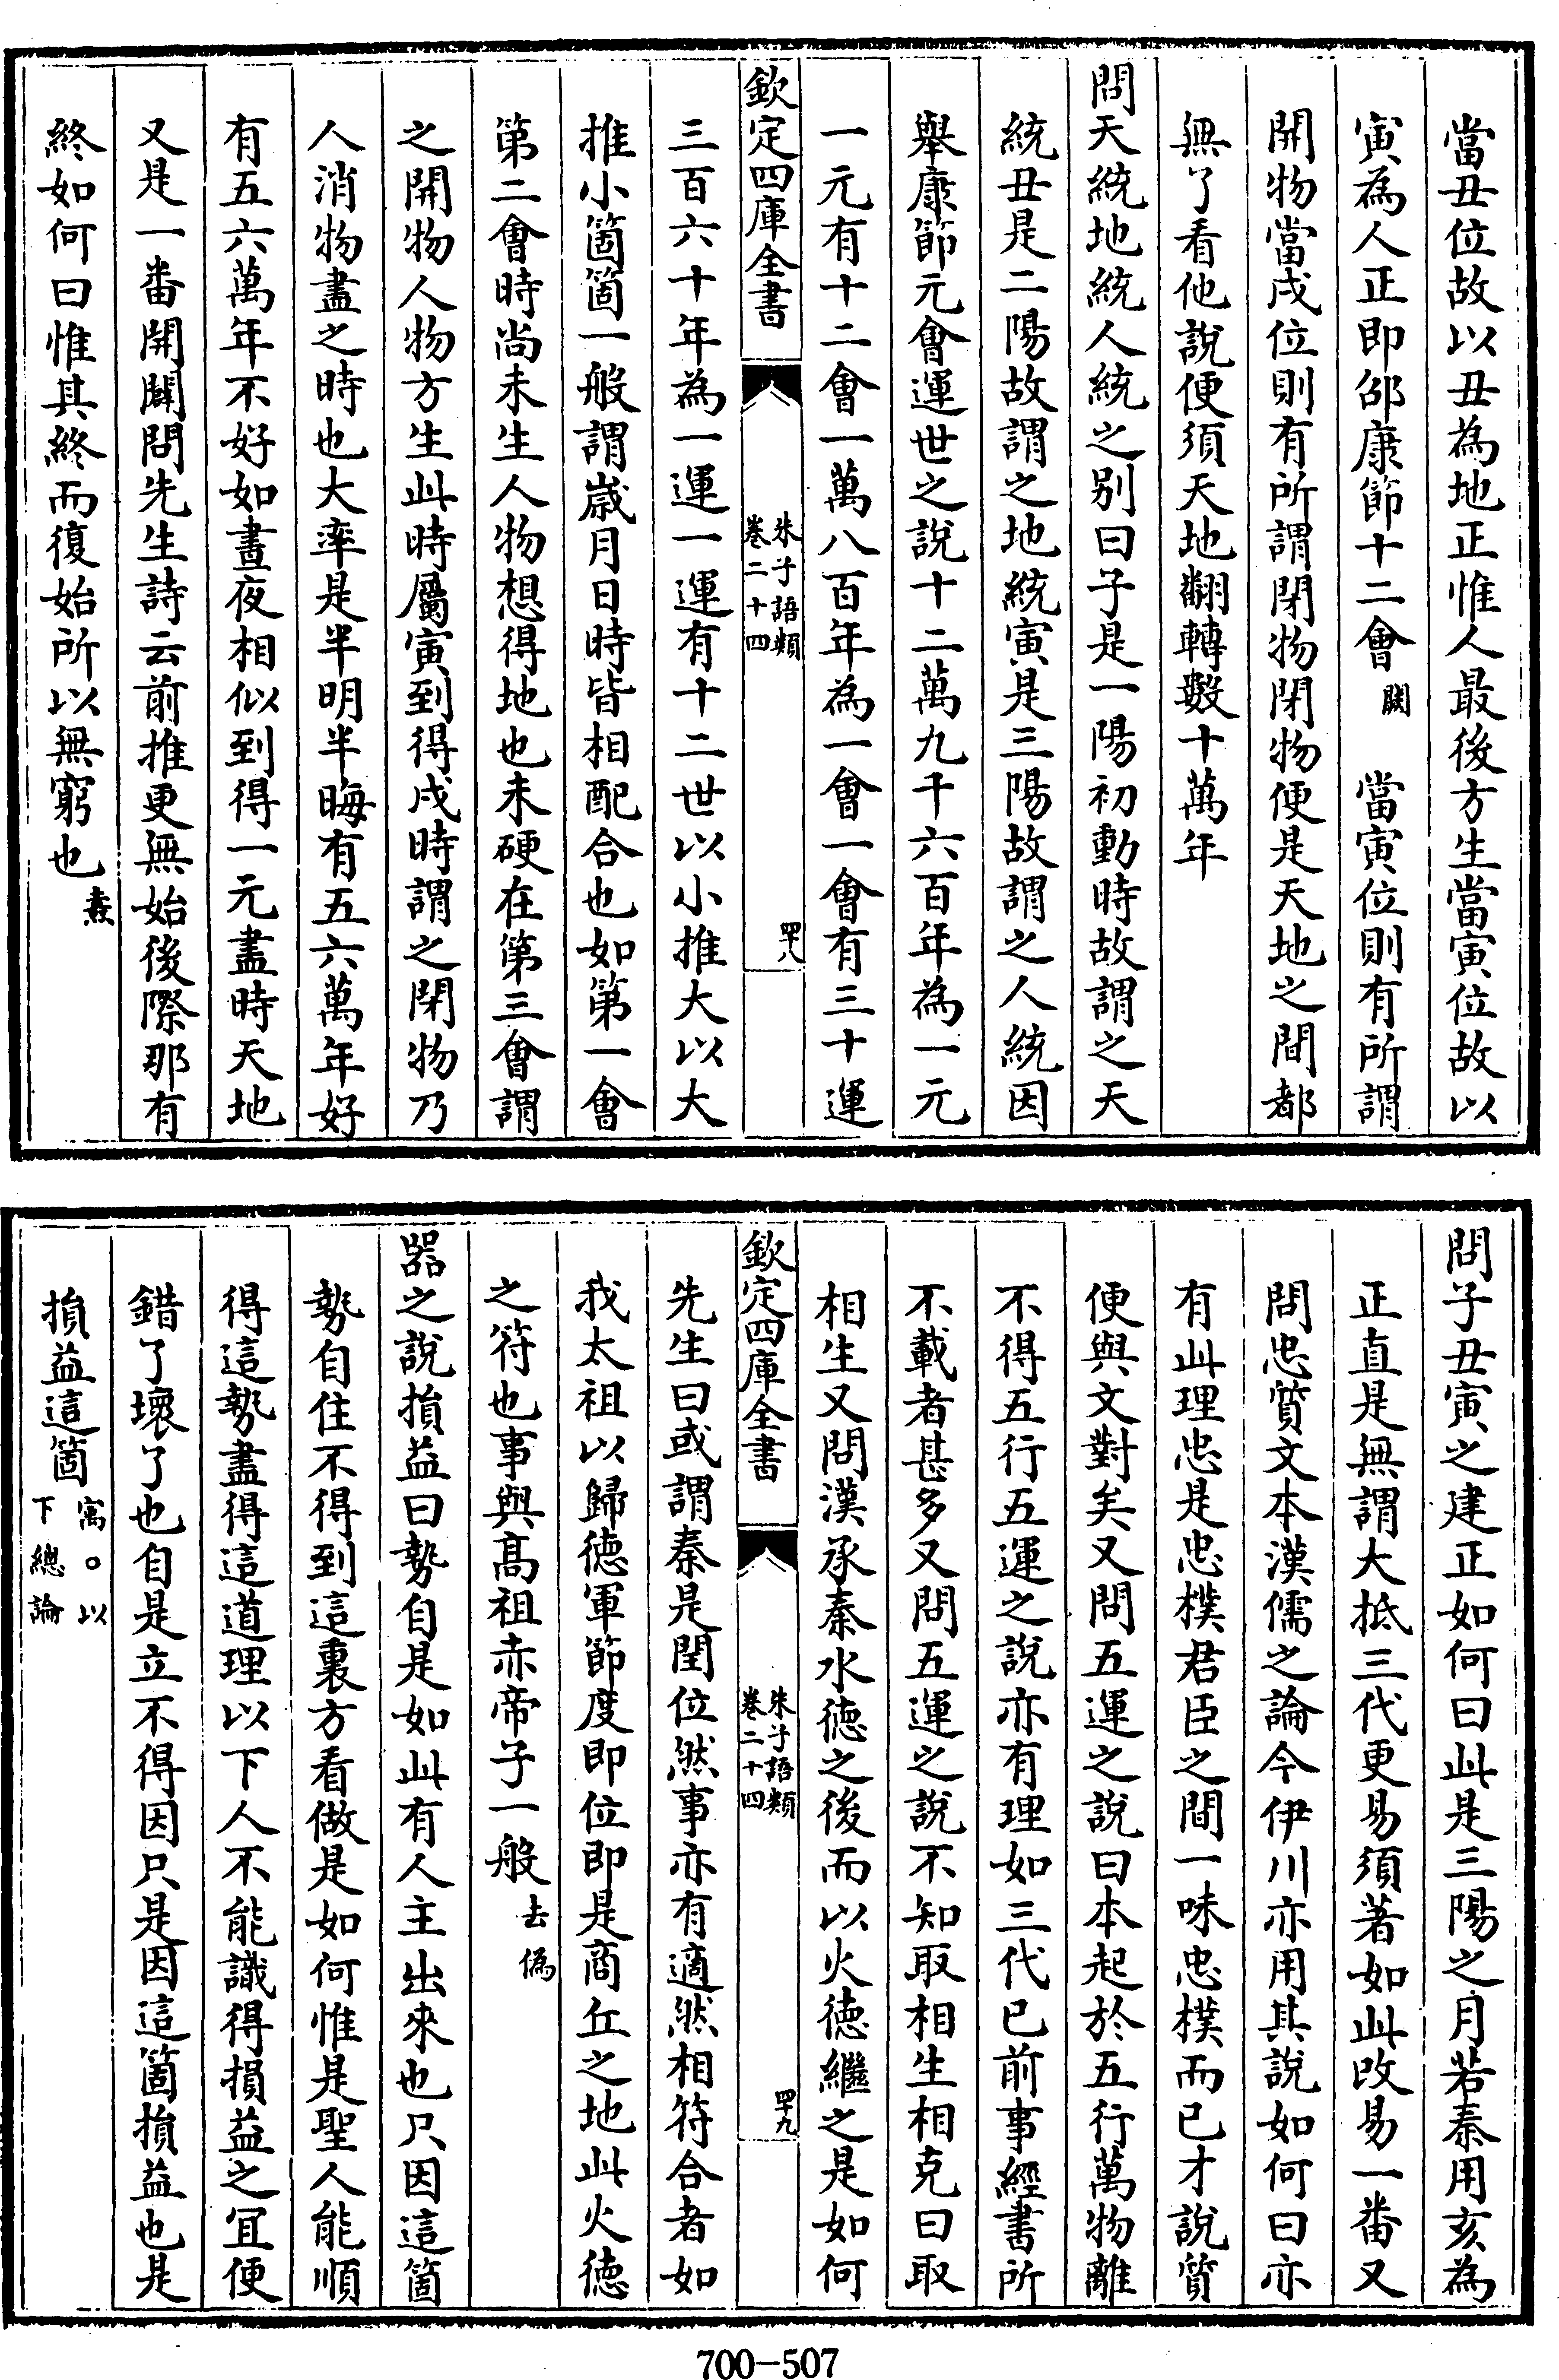 當丑位故以丑為地正惟人最後方生當寅位故以
寅為人正即邵康節十二會闕當寅位則有所謂
開物當戌位則有所謂閉物閉物便是天地之間都
無了看他說便須天地翻轉數十萬年
問天統地統人統之别曰子是一陽初動時故謂之天
統丑是二陽故謂之地統寅是三陽故謂之人統因
舉康節元會運世之說十二萬九千六百年為一元
一元有十二會一萬八百年為一會一會有三十運
欽定四庫全書
朱子語類
卷二十四
四十八
三百六十年為一運一運有十二世以小推大以大
推小箇箇一般謂嵗月日時皆相配合也如第一會
第二會時尚未生人物想得地也未硬在第三會謂
之開物人物方生此時屬寅到得戌時謂之閉物乃
人消物盡之時也大率是半明半晦有五六萬年好
有五六萬年不好如晝夜相似到得一元盡時天地
又是一番開闢問先生詩云前推更無始後際那有
終如何曰惟其終而復始所以無窮也燾
問子丑寅之建正如何曰此是三陽之月若秦用亥為
正直是無謂大抵三代更易須著如此改易一番又
問忠質文本漢儒之論今伊川亦用其說如何曰亦
有此理忠是忠樸君臣之間一味忠樸而已才說質
便與文對矣又問五運之說曰本起於五行萬物離
不得五行五運之說亦有理如三代已前事經書所
不載者甚多又問五運之說不知取相生相克曰取
相生又問漢承秦水徳之後而以火徳繼之是如何
欽定四庫全書
朱子語類
卷二十四
四十九
先生曰或謂秦是閏位然事亦有適然相符合者如
我太祖以歸徳軍節度即位即是商丘之地此火徳
之符也事與高祖赤帝子一般去偽
器之說損益曰勢自是如此有人主出來也只因這箇
勢自住不得到這裏方看做是如何惟是聖人能順
得這勢盡得這道理以下人不能識得損益之宜便
錯了壞了也自是立不得因只是因這箇損益也是
損益這箇寓○以
下總論
700-507